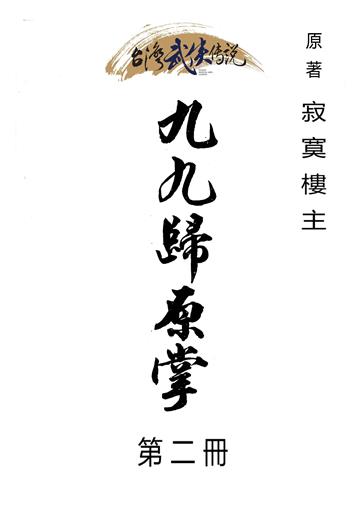 原著 寂寞樓主
台灣武俠傳説
九九歸原掌
第二冊